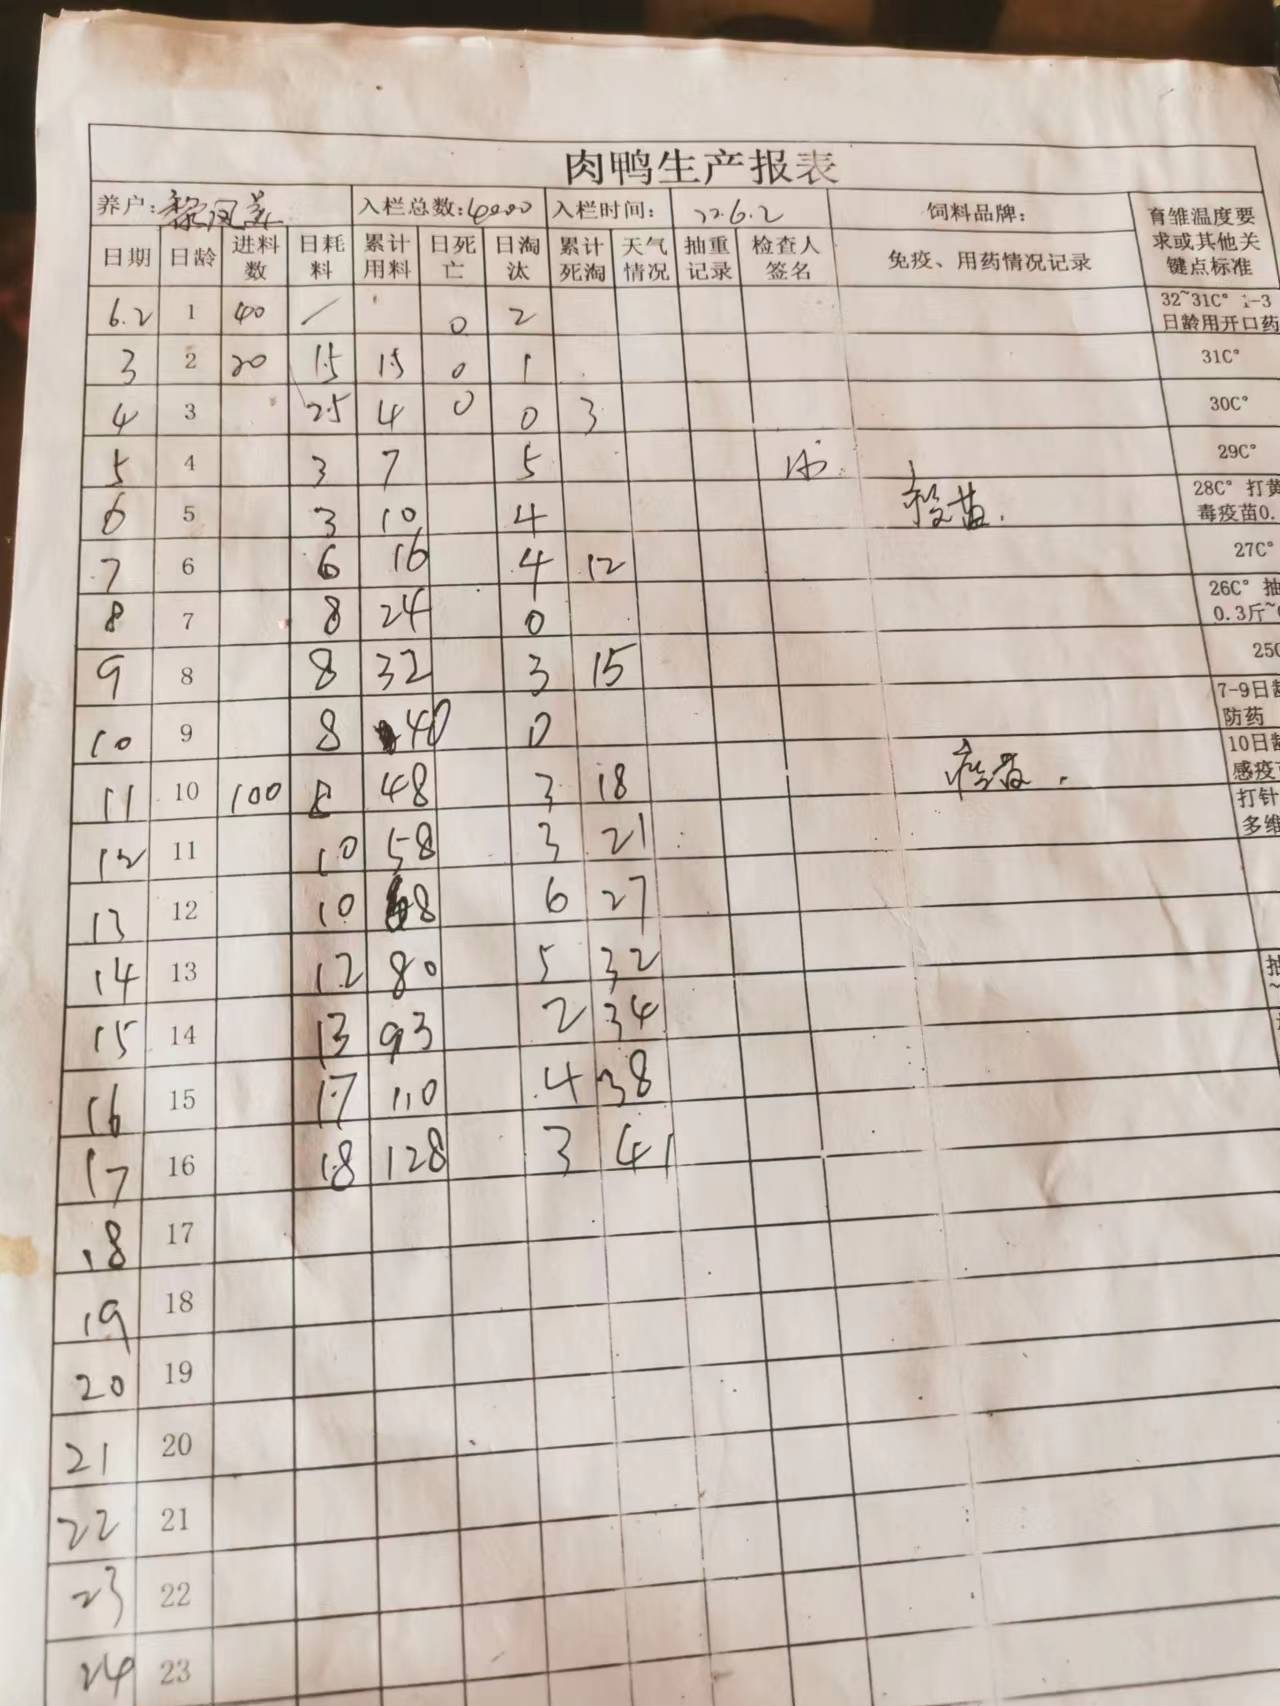 肉鸭生产报表
养户: 黎凤 入栏总数: 4000 入栏时间: 22.6.2 饲料品牌: 育雏温度要求或其他关键点标准
日期 日龄 进料数 日耗料 累计用料 日死亡 日淘汰 累计死淘 天气情况 抽重记录 检查人签名 免疫、用药情况记录
6.2 1 40 / 0 2 32~31C° 1-3日龄用开口药
3 2 20 1.5 1.5 0 1 31C°
4 3 2.5 4 0 0 3 30C°
5 4 3 7 5 29C°
6 5 3 10 4 疫苗. 28C° 打黄 毒疫苗0.
7 6 6 16 4 12 27C°
8 7 8 24 0 26C° 抽 0.3斤~
9 8 8 32 3 15 25C
10 9 8 40 0 7-9日龄 防药
11 10 100 8 48 3 18 疫苗. 10日龄 感疫
12 11 10 58 3 21 打针 多维
13 12 10 68 6 27
14 13 12 80 5 32 抽 ~
15 14 13 93 2 34
16 15 17 110 4 38
17 16 18 128 3 41
18 17
19 18
20 19
21 20
22 21
23 22
24 23